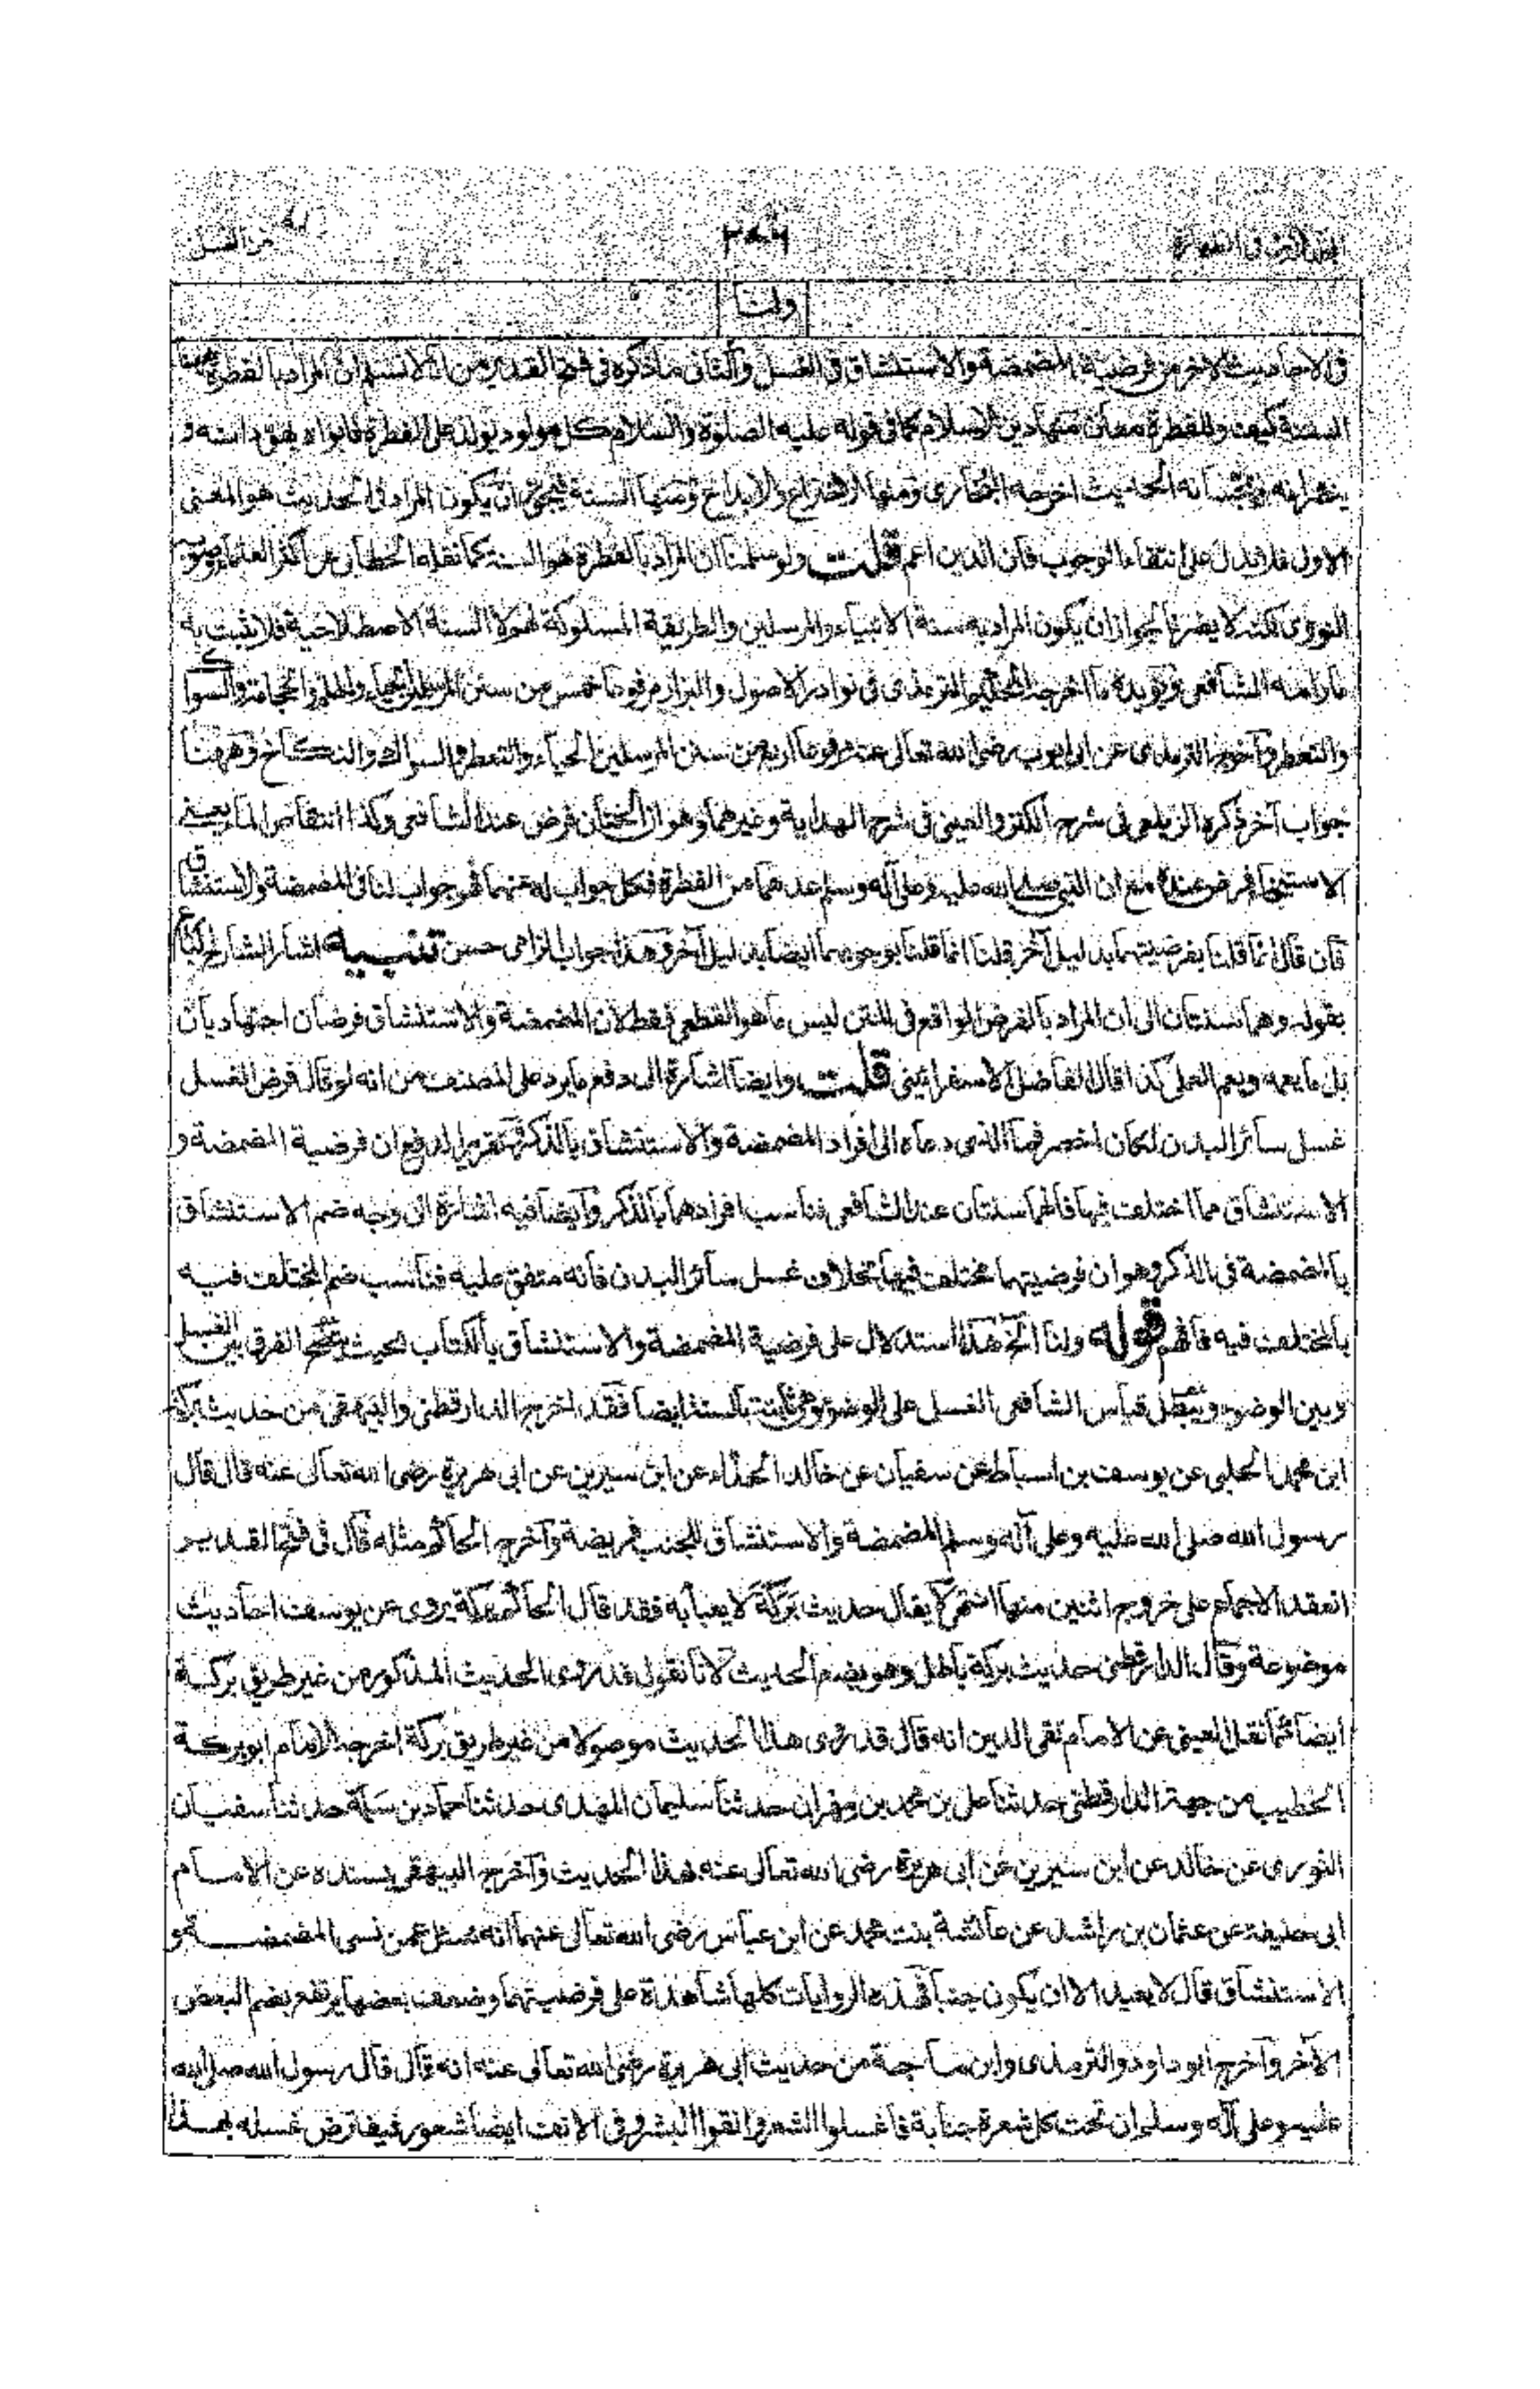 ٢٨٦
ولنا
في الاحاديث الاخر من فرضية المضمضة والاستنشاق في الغسل والثاني ما ذكره في فتح القدير من انا لا نسلم ان المراد بالفطرة ههنا
السنة كيف وللفطرة معان منها دين الاسلام كما في قوله عليه الصلوة والسلام كل مولود يولد على الفطرة فابواه يهودانه و
ينصرانه ويمجسانه الحديث اخرجه البخاري ومنها الاختراع والابداع ومنها السنة فيجوز ان يكون المراد في الحديث هو المعنى
الاول فلا يدل على انتفاء الوجوب فان الدين اعم قلت ولو سلمنا ان المراد بالفطرة هو السنة كما نقله الخطابي عن اكثر العلماء وصوبه
النووي لكنه لا يضرنا لجواز ان يكون المراد به سنة الانبياء والمرسلين والطريقة المسلوكة لهم لا السنة الاصطلاحية فلا يثبت به
ما رامه الشافعي ويؤيده ما اخرجه الحكيم الترمذي في نوادر الاصول والبزار مرفوعا خمس من سنن المرسلين الحياء والحلم والحجامة والسواك
والتعطر وآخرج الترمذي عن ابي ايوب رضي الله تعالى عنه مرفوعا اربع من سنن المرسلين الحياء والتعطر والسواك والنكاح وههنا
جواب آخر ذكره الزيلعي في شرح الكنز والعيني في شرح الهداية وغيرهما وهو ان الختان فرض عند الشافعي وكذا انتقاص الماء يعني
الاستنجاء فرض عنده مع ان النبي صلى الله عليه وعلى آله وسلم عدهما من الفطرة فكل جواب له عنهما فهو جواب لنا في المضمضة والاستنشاق
فان قال انما قلنا بفرضيتهما بدليل آخر قلنا انما قلنا بوجوبهما ايضا بدليل آخر وهذا جواب الزامي حسن تنبيه اشار الشارح
بقوله وهما سنتان الى ان المراد بالفرض الواقع في المتن ليس ما هو القطعي فقط لان المضمضة والاستنشاق فرضان اجتهاديان
بل ما يعمه ويعم العملي كذا قال الفاضل الاسفرائيني قلت وايضا اشارة الى دفع ما يرد على المصنف من انه لو قال فرض الغسل
غسل سائر البدن لكان اخصر فما الذي دعاه الى افراد المضمضة والاستنشاق بالذكر وتقرير الدفع ان فرضية المضمضة و
الاستنشاق مما اختلف فيها فانهما سنتان عند الشافعي فناسب افرادهما بالذكر وايضا فيه اشارة الى وجه ضم الاستنشاق
بالمضمضة في الذكر وهو ان فرضيتهما مختلف فيها بخلاف غسل سائر البدن فانه متفق عليه فناسب ضم المختلف فيه
بالمختلف فيه فافهم قوله ولنا الخ هذا استدلال على فرضية المضمضة والاستنشاق بالكتاب بحيث يتضح الفرق بين الغسل
وبين الوضوء ويبطل قياس الشافعي الغسل على الوضوء وهي ثابتة بالسنة ايضا فقد اخرج الدارقطني والبيهقي من حديث بركة
ابن محمد الحلبي عن يوسف بن اسباط عن سفيان عن خالد الحذاء عن ابن سيرين عن ابي هريرة رضي الله تعالى عنه قال قال
رسول الله صلى الله عليه وعلى آله وسلم المضمضة والاستنشاق للجنب فريضة وآخرج الحاكم مثله قال في فتح القدير
انعقد الاجماع على خروج اثنين منها انتهى لا يقال حديث بركة لا يعبأ به فقد قال الحاكم بركة يروي عن يوسف احاديث
موضوعة وقال الدارقطني حديث بركة باطل وهو يضع الحديث لانا نقول قد روي الحديث المذكور من غير طريق بركة
ايضا كما نقل العيني عن الامام تقي الدين انه قال قد روي هذا الحديث موصولا من غير طريق بركة اخرجه الامام ابو بركة
الخطيب من جهة الدارقطني حدثنا علي بن محمد بن مهران حدثنا سليمان المهدي حدثنا حماد بن سلمة حدثنا سفيان
الثوري عن خالد عن ابن سيرين عن ابي هريرة رضي الله تعالى عنه بهذا الحديث وآخرج البيهقي بسنده عن الامام
ابي حنيفة عن عثمان بن راشد عن عائشة بنت محمد عن ابن عباس رضي الله تعالى عنهما انه سئل عمن نسي المضمضة و
الاستنشاق قال لا يعيد الا ان يكون جنبا فهذه الروايات كلها شاهدة على فرضيتهما وضعف بعضها يرتفع بضم البعض
الآخر وآخرج ابو داود والترمذي وابن ماجة من حديث ابي هريرة رضي الله تعالى عنه انه قال قال رسول الله صلى الله
عليه وعلى آله وسلم ان تحت كل شعرة جنابة فاغسلوا الشعر وانقوا البشر وفي الانف ايضا شعور فيفترض غسله بهذا